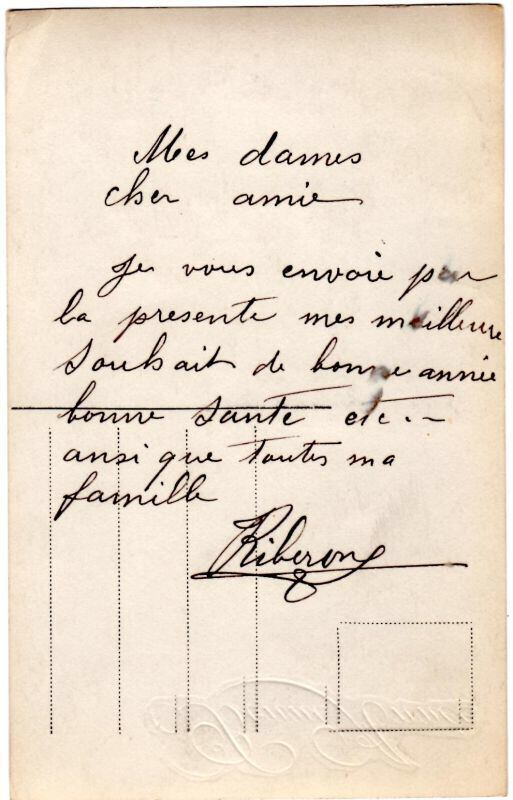 Mes dames
cher amie
Je vous envoie par
la presente mes meilleure
souhait de bonne année
bonne santé etc..
ansi que toutes ma
famille
Riberon